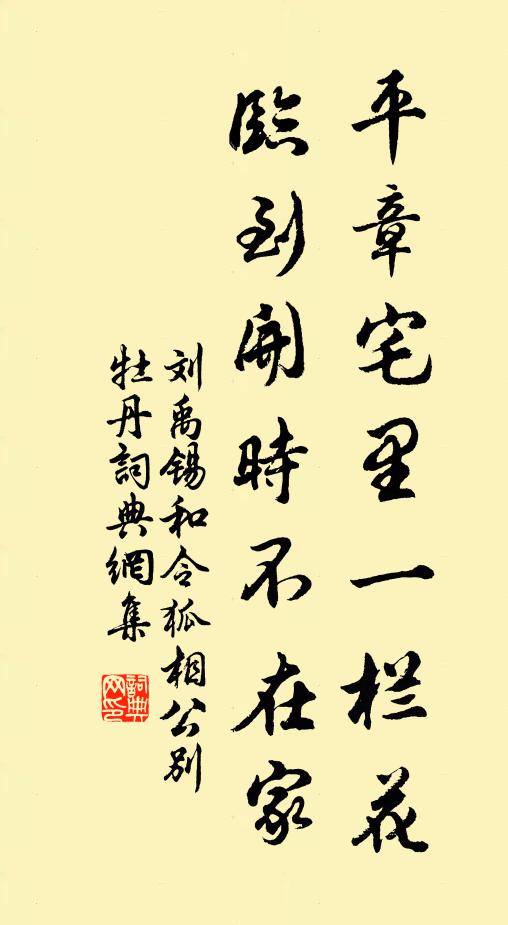 平章宅里一栏花
臨到開時不在家
刘禹锡和令狐相公别
牡丹詞典網集
詞典网印